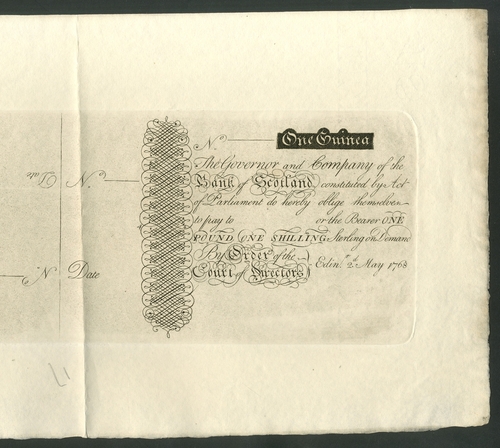 One Guinea
N.º
The Governor and Company of the
Bank of Scotland constituted by Act
of Parliament do hereby oblige themselves
to pay to or the Bearer ONE
POUND ONE SHILLING Sterling on Demand
By Order of the
Court of Directors
Edinr. 2d. May 1768
N.º
Date
N.º
Date
17